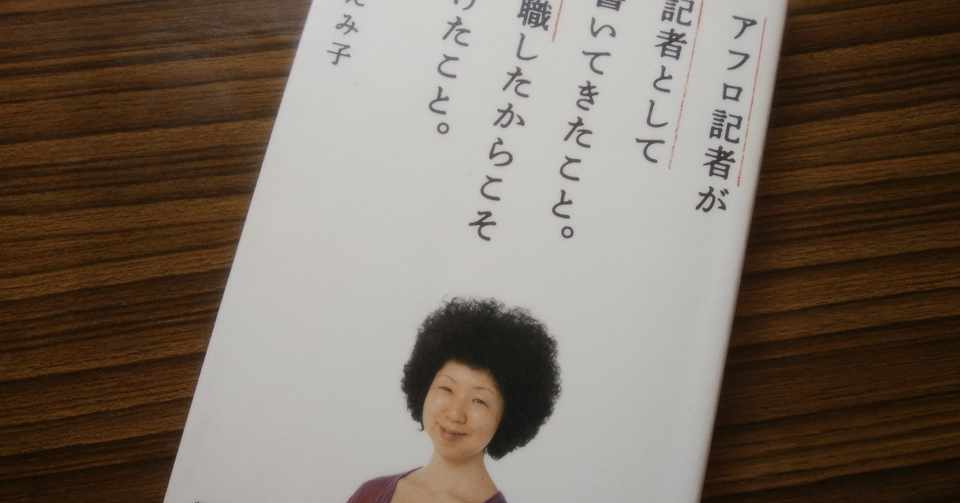 アフロ記者が
記者として
書いてきたこと。
職したからこそ
けたこと。
えみ子